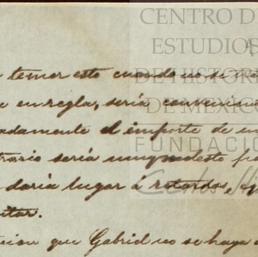 CENTRO DE
ESTUDIOS
DE HISTORIA
DE MÉXICO
FUNDACIÓN
temer esto cuando no se
en regla, seria
damente el importe de un
trario seria muy molesto
daria lugar á retardos, y
itar.
cion que Gabriel no se haya